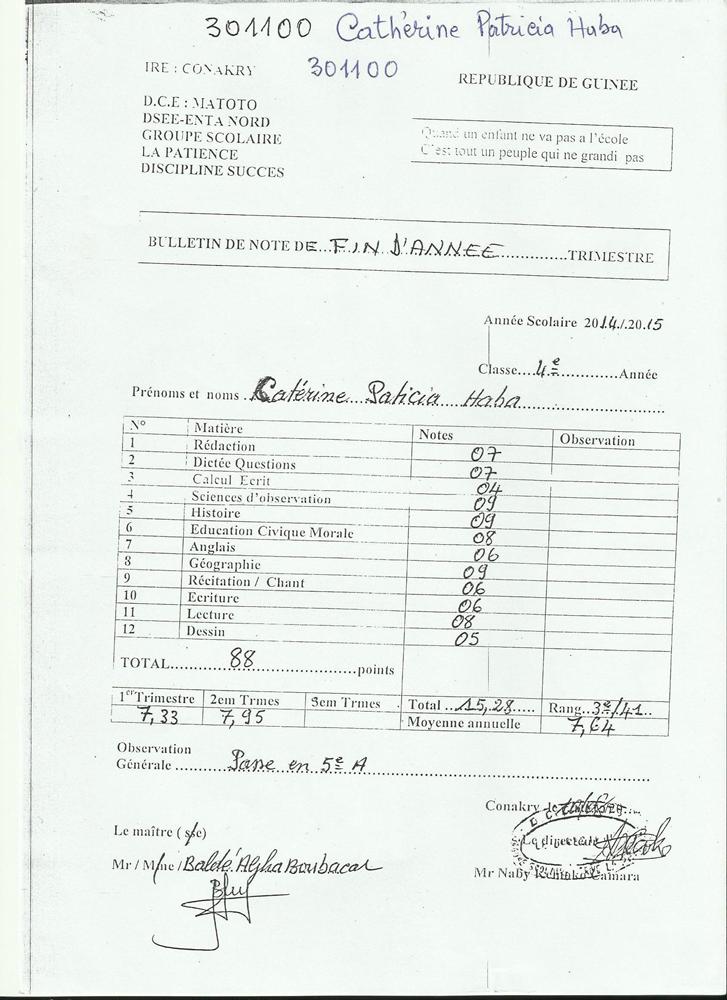 301100 Cathérine Patricia Haba
IRE : CONAKRY 301100 REPUBLIQUE DE GUINEE
D.C.E : MATOTO
DSEE-ENTA NORD
GROUPE SCOLAIRE
LA PATIENCE
DISCIPLINE SUCCES
Quand un enfant ne va pas a l'école
C'est tout un peuple qui ne grandi pas
BULLETIN DE NOTE DE...FIN D'ANNEE.............TRIMESTRE
Année Scolaire 2014./.20.15
Classe...4e............Année
Prénoms et noms...Catérine...Paticia...Haba......................
N° Matière Notes Observation
1 Rédaction 07
2 Dictée Questions 07
3 Calcul Ecrit 04
4 Sciences d'observation 09
5 Histoire 09
6 Education Civique Morale 08
7 Anglais 06
8 Géographie 09
9 Récitation / Chant 06
10 Ecriture 06
11 Lecture 08
12 Dessin 05
TOTAL...........88....................points
1er Trimestre 2em Trmes 3em Trmes Total ...15,28..... Rang..3e/41..
7,33 7,95 Moyenne annuelle 7,64
Observation
Générale .........Passe en 5e A
Conakry le
Le maître ( sse)
Le directeur
Mr / Mme / Baldé Alpha Boubacar
Mr Naby Camara